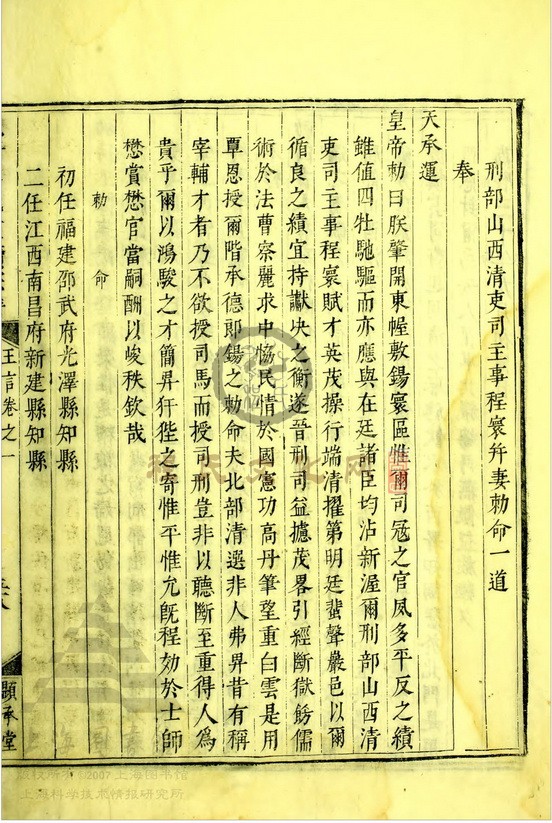 刑部山西清吏司主事程寰并妻勅命一道
奉
天承運
皇帝勅曰朕肇開東幄敷錫寰區惟爾司寇之官夙多平反之績
雖值四牡馳驅而亦應與在廷諸臣均沾新渥爾刑部山西清
吏司主事程寰賦才英茂操行端清擢第明廷蜚聲嚴邑以爾
循良之績宜持讞决之衡遂晉刑司益攄茂畧引經斷獄餙儒
術於法曹察麗求中恊民情於國憲功高丹筆望重白雲是用
覃恩授爾階承德郎錫之勅命夫比部清選非人弗昇昔有稱
宰輔才者乃不欲授司馬而授司刑豈非以聽斷至重得人為
貴乎爾以鴻駿之才簡昇犴狴之寄惟平惟允既程効於士師
懋賞懋官當嗣酬以峻秩欽哉
勅命
初任福建邵武府光澤縣知縣
二任江西南昌府新建縣知縣
王言卷之一
顯承堂
版权所有©2007上海图书馆
上海科学技术情报研究所